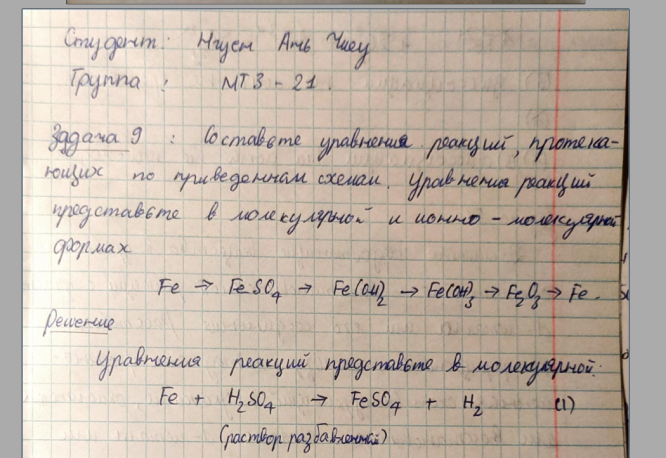 Студент: Нгуен Ань Чиеу
Группа : МТ3 - 21.
Задача 9 : Составьте уравнения реакций, протека-
ющих по приведенным схемам. Уравнения реакций
представьте в молекулярной и ионно - молекулярной
формах
Fe → FeSO₄ → Fe(OH)₂ → Fe(OH)₃ → Fe₂O₃ → Fe.
Решение
Уравнения реакций представьте в молекулярной:
Fe + H₂SO₄ → FeSO₄ + H₂ (1)
(раствор разбавленный)